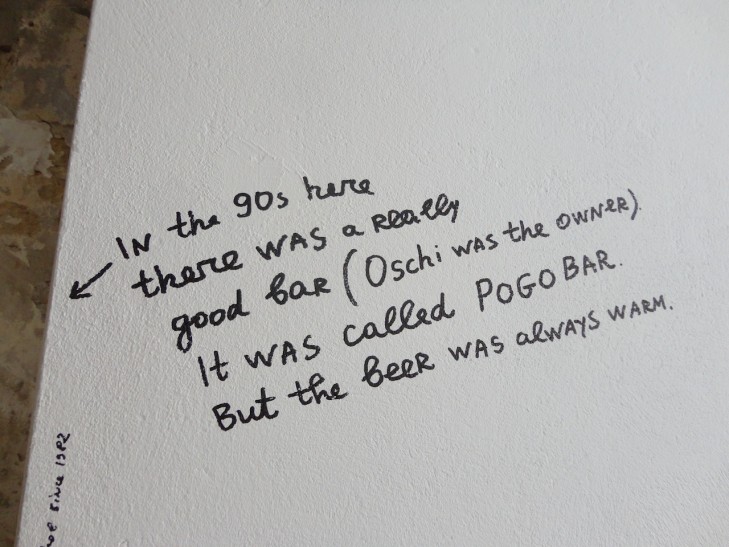 In the 90s here
there was a really
good bar (Oschi was the owner).
It was called POGO BAR.
But the beer was always warm.
since 1982